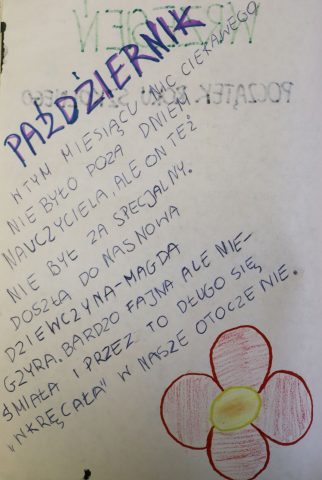 PAŹDZIERNIK
W TYM MIESIĄCU NIC CIEKAWEGO
NIE BYŁO POZĄ DNIEM
NAUCZYCIELA, ALE ON TEŻ
NIE BYŁ ZA SPECJALNY.
DOSZŁA DO NAS NOWA
DZIEWCZYNA-MAGDA
GZYRA. BARDZO FAJNA ALE NIE-
ŚMIAŁA I PRZEZ TO DŁUGO SIĘ
„WKRĘCAŁA" W NASZE OTOCZENIE.
WRZESIEŃ
POCZĄTEK ROKU SZKOLNEGO